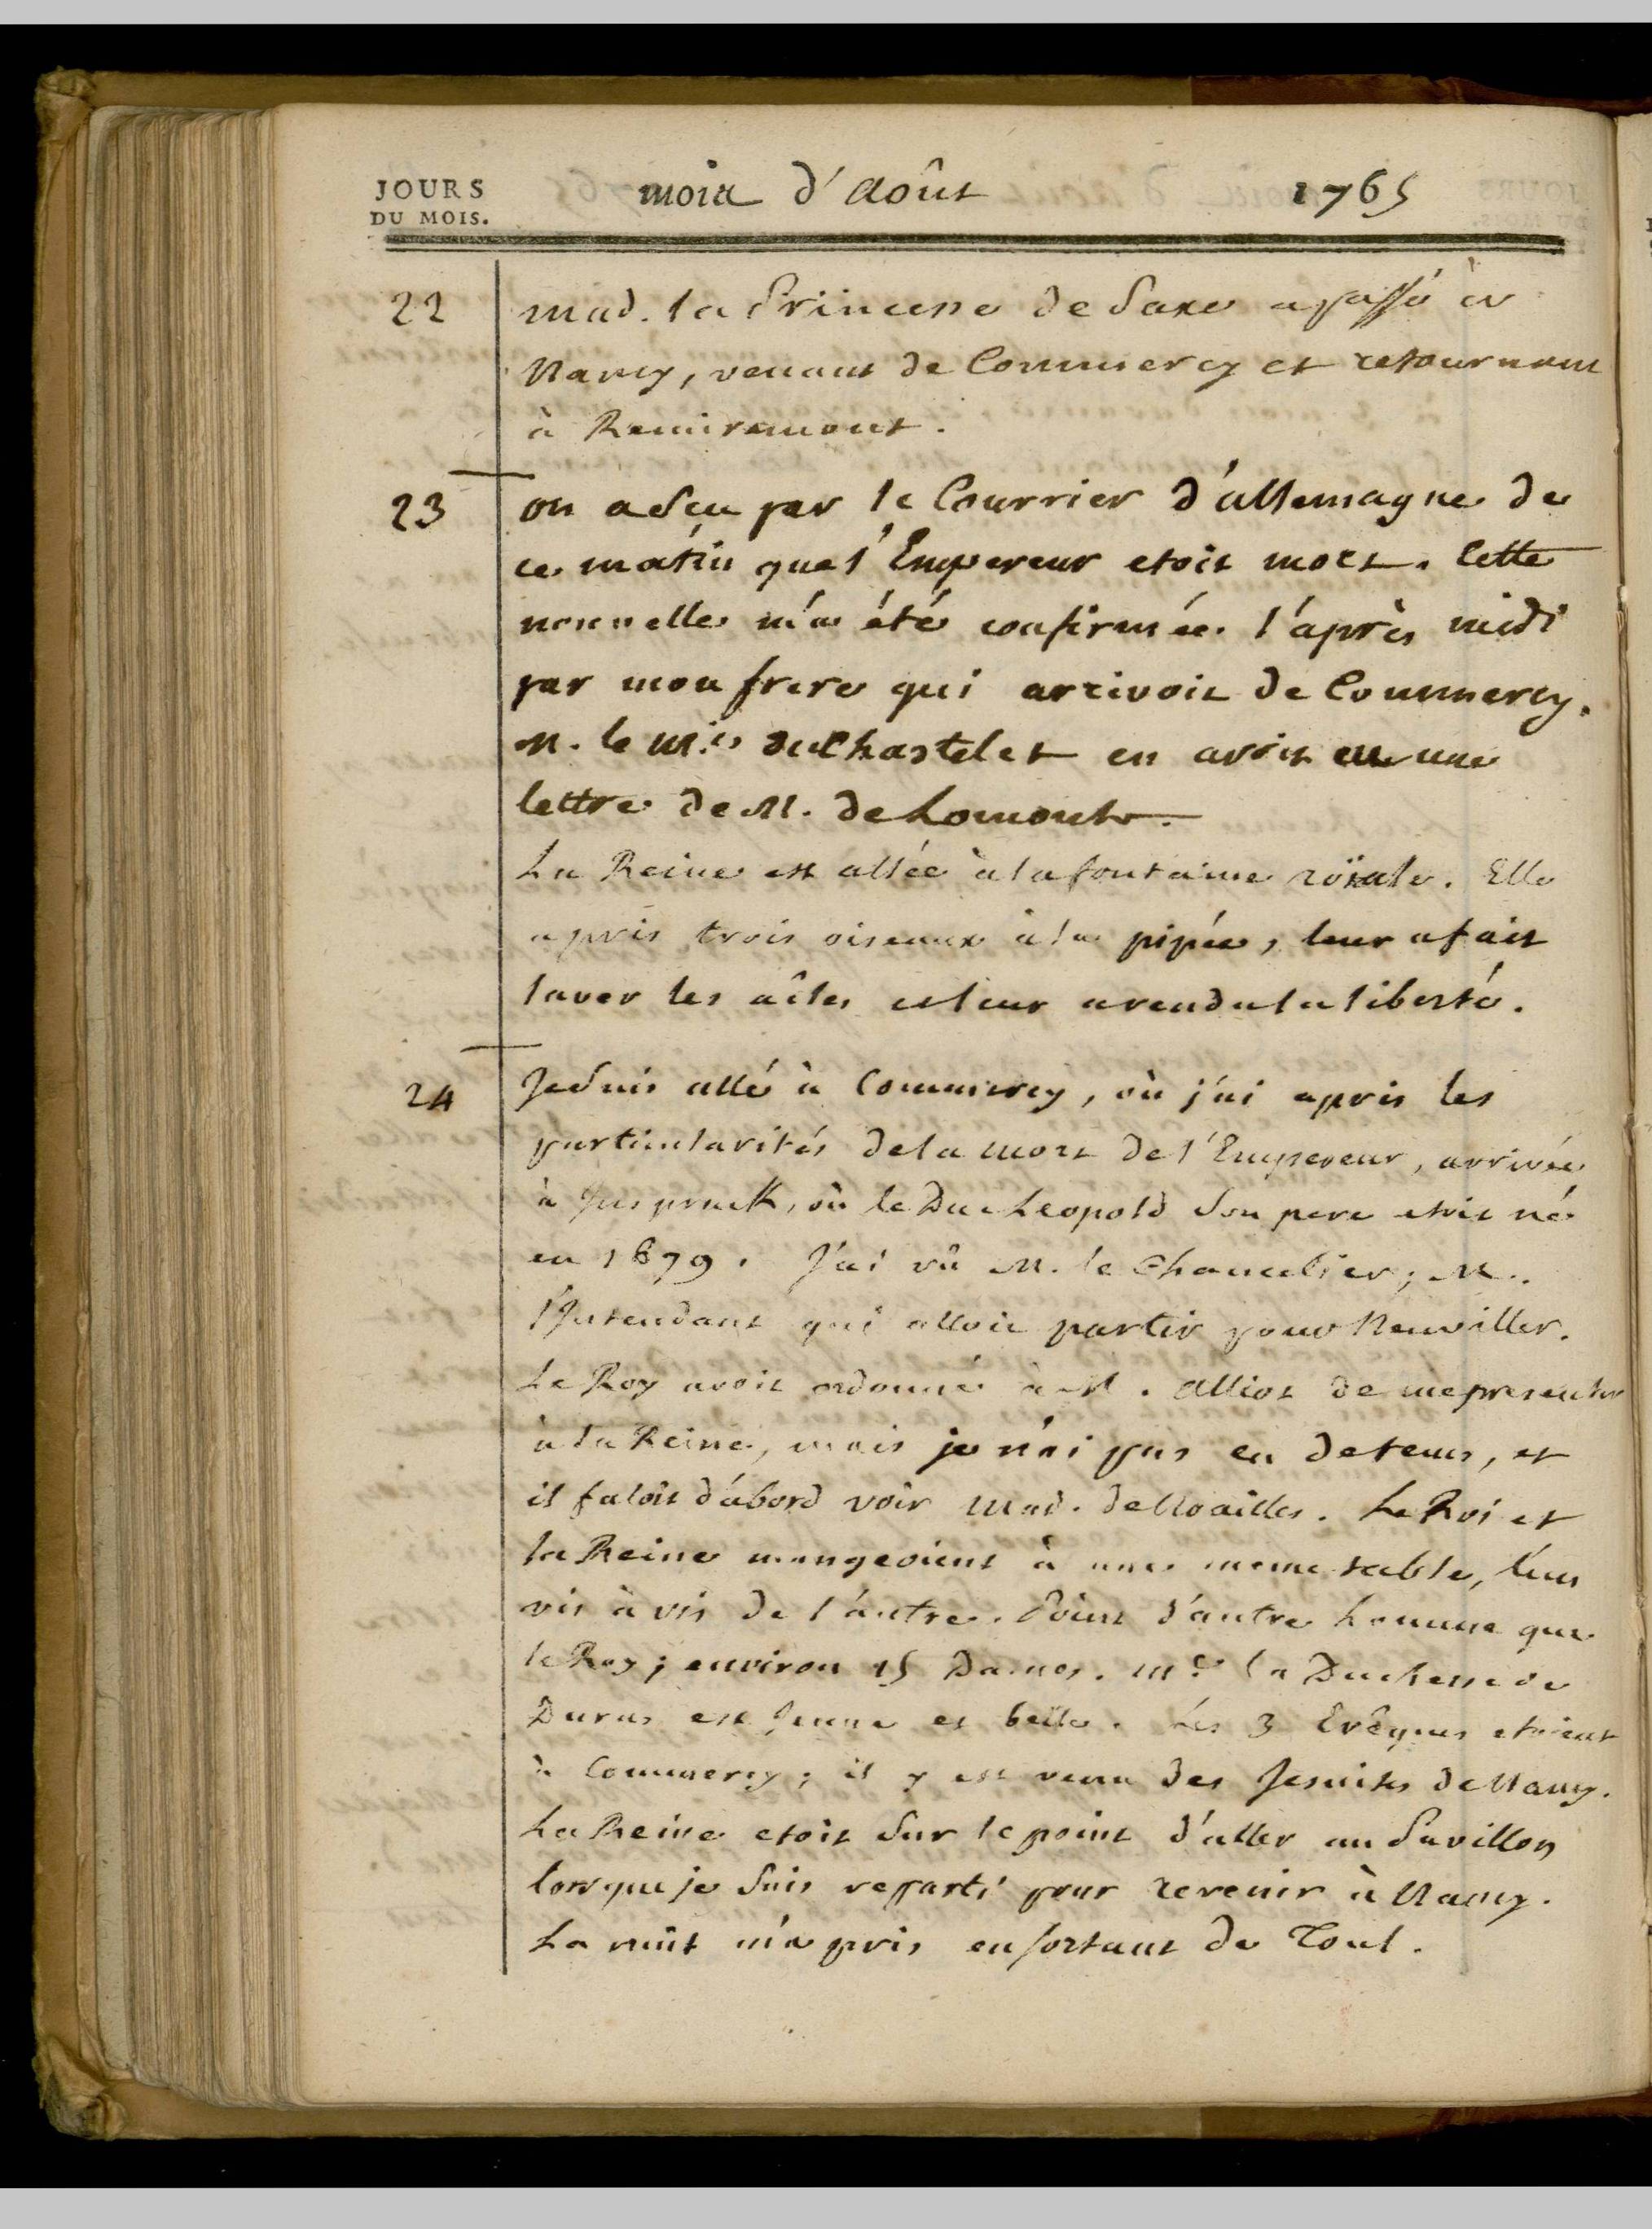 JOURS
DU MOIS.
mois d'Août 1765
22 mad. la Princesse de Saxe a passé à
Nancy, venant de Commercy et retournant
à Remiremont.
23 on a sçu par le Courrier d'allemagne de
ce matin que l'Empereur etoit mort. Cette
nouvelle m'a été confirmée l'après midi
par mon frere qui arrivoit de Commercy.
M. le M.is du Chastelet en avoit eu une
lettre de M. de Lomont.
La Reine est allée à la fontaine roïale. Elle
a pris trois oiseaux à la pipée, leur a fait
laver les aîles et leur a rendu la liberté.
24 Je suis allé à Commercy, où j'ai apris les
particularités de la mort de l'Empereur, arrivée
à Jnspruck, où le Duc Leopold son pere etoit né
en 1679. J'ai vû M. le Chancelier; M.
l'Jntendant qui alloit partir pour Neuviller.
Le Roy avoit ordonné à M. Alliot de me presenter
à la Reine, mais je n'ai pas eu de tems, et
il faloit d'abord voir Mad. de Noailles. Le Roi et
la Reine mangeoient à une meme table, l'un
vis à vis de l'autre. Point d'autre homme que
le Roy; environ 15 Dames. M.e la Duchesse de
Duras est Jeune et belle. Les 3 Evêques etoient
à Commercy; il y est venu des Jesuites de Nancy.
La Reine etoit sur le point d'aller au Pavillon
lorsque je suis reparti pour revenir à Nancy.
La nuit m'a pris en sortant de Toul.